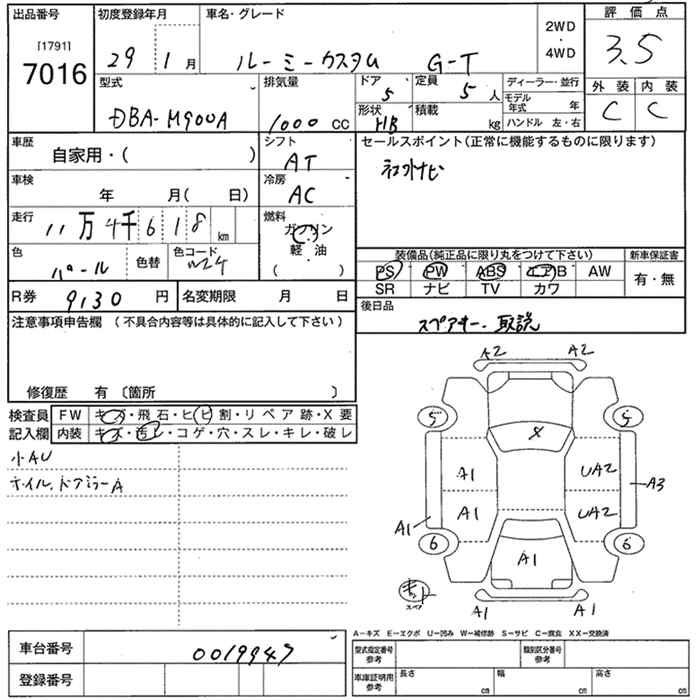 出品番号 初度登録年月 車名・グレード 2WD・4WD 評価点
[1791]
7016 29 1月 ルーミーカスタム G-T 3.5
型式 排気量 ドア 5 定員 5人 ディーラー・並行 外装 内装
DBA-M900A 1000 CC 形状 HB 積載 kg モデル年式 年 C C
ハンドル 左・右
車歴 シフト セールスポイント(正常に機能するものに限ります)
自家用・( ) AT ネコ外ナビ
車検 年 月( 日) 冷房 AC
走行 11万4千618km 燃料 ガソリン
軽・油
( )
色 パール 色替 色コード W24
装備品(純正品に限り丸をつけて下さい) 新車保証書
PS PW ABS エアB AW 有・無
SR ナビ TV カワ
R券 9130円 名変期限 月 日 後日品
スペアキー・取説
注意事項申告欄 (不具合内容等は具体的に記入して下さい)
修復歴 有 〔箇所 〕
検査員 FW キズ・飛石・ヒビ割・リペア跡・X要
記入欄 内装 キズ・汚レ・コゲ・穴・スレ・キレ・破レ
小AU
ホイル、ドアミラーA
A2 A2
5 5
X
A1 UA2
A3
A1 UA2
A1
6 6
A1
キット
スペア
A1 A1
A-キズ E-エクボ U-凹み W-補修跡 S-サビ C-腐食 XX-交換済
車台番号 0019947
型式指定番号 参考 類別区分番号 参考
登録番号
車庫証明用 参考 長さ cm 幅 cm 高さ cm